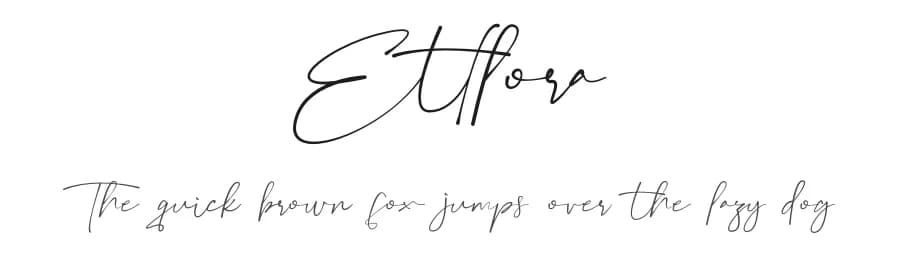 Etflora
The quick brown fox jumps over the lazy dog